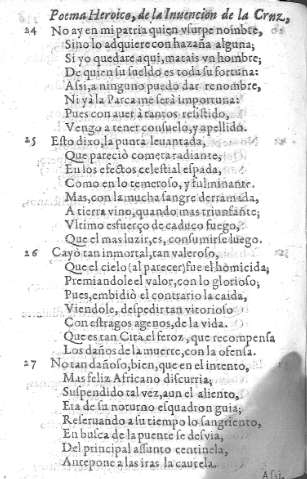 Poema Heroico, de la Inuencion de la Cruz,
24 No ay en mi patria quien vsurpe nombre,
Sino lo adquiere con hazaña alguna;
Si yo quedare aqui, matais vn hombre;
De quien su sueldo es toda su fortuna:
Assi, a ninguno puedo dar renombre,
Ni yà la Parca me serà importuna:
Pues con auer à tantos resistido,
Vengo a tener consuelo, y apellido.
25 Esto dixo, la punta leuantada,
Que pareciò cometa radiante,
En los efectos celestial espada,
Como en lo temeroso, y fulminante.
Mas, con la mucha sangre derramada,
A tierra vino, quando mas triunfante;
Vltimo esfuerço de caduco fuego,
Que el mas luzir, es, consumirse luego.
26 Cayò tan inmortal, tan valeroso,
Que el cielo (al parecer) fue el homicida;
Premiandole el valor, con lo glorioso;
Pues, embidiò el contrario la caida,
Viendole, despedir tan vitorioso
Con estragos agenos, de la vida.
Que es tan Cita el feroz, que recompensa
Los daños de la muerte, con la ofensa.
27 No tan dañoso, bien, que en el intento,
Mas feliz Africano discurria;
Suspendido tal vez, aun el aliento,
Era de su noturno esquadron guia;
Reseruando a su tiempo lo sangriento,
En busca de la puente se desvia,
Del principal assunto centinela,
Antepone a las iras la cautela.
Assi,